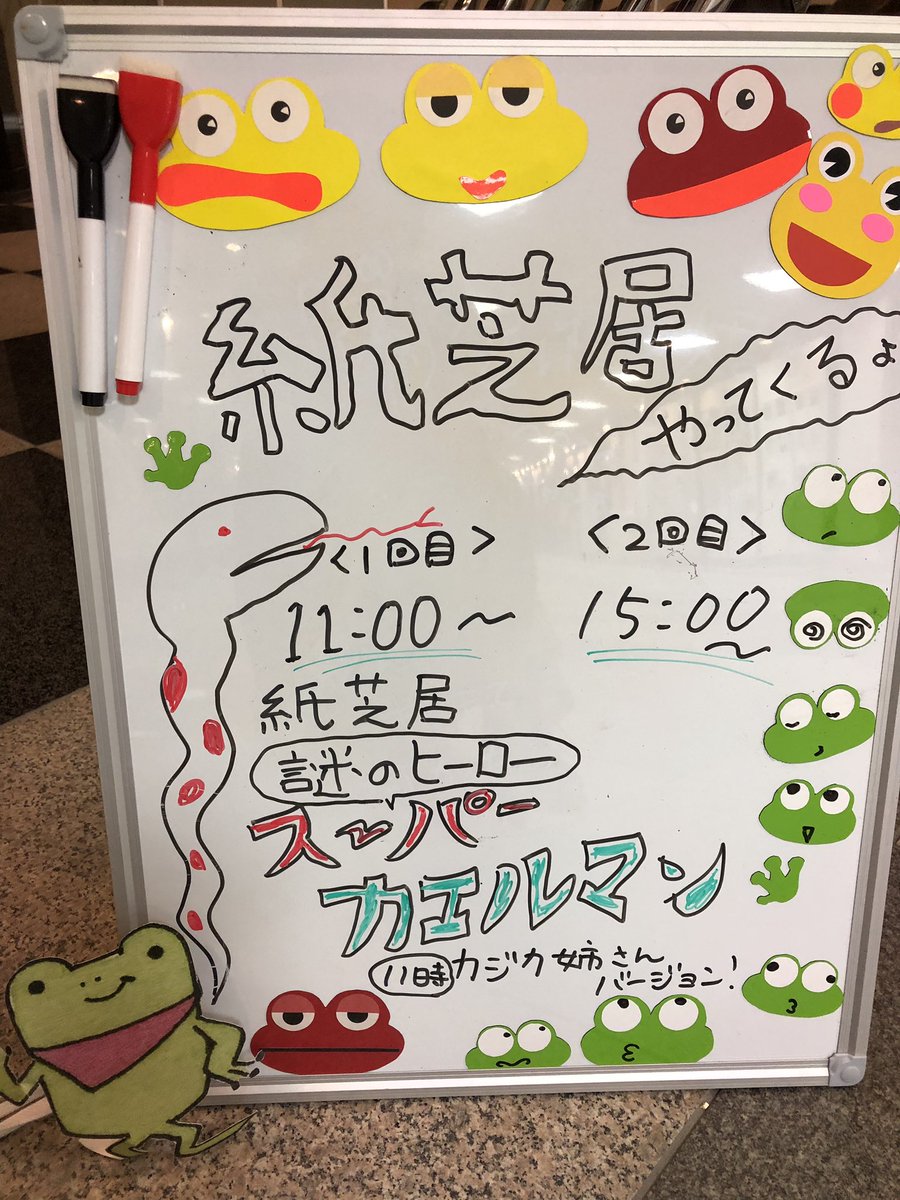 紙芝居
やってくるよ
<1回目>
<2回目>
11:00～
15:00～
紙芝居
謎のヒーロー
スーパー
カエルマン
11時 カジカ姉さん
バージョン!